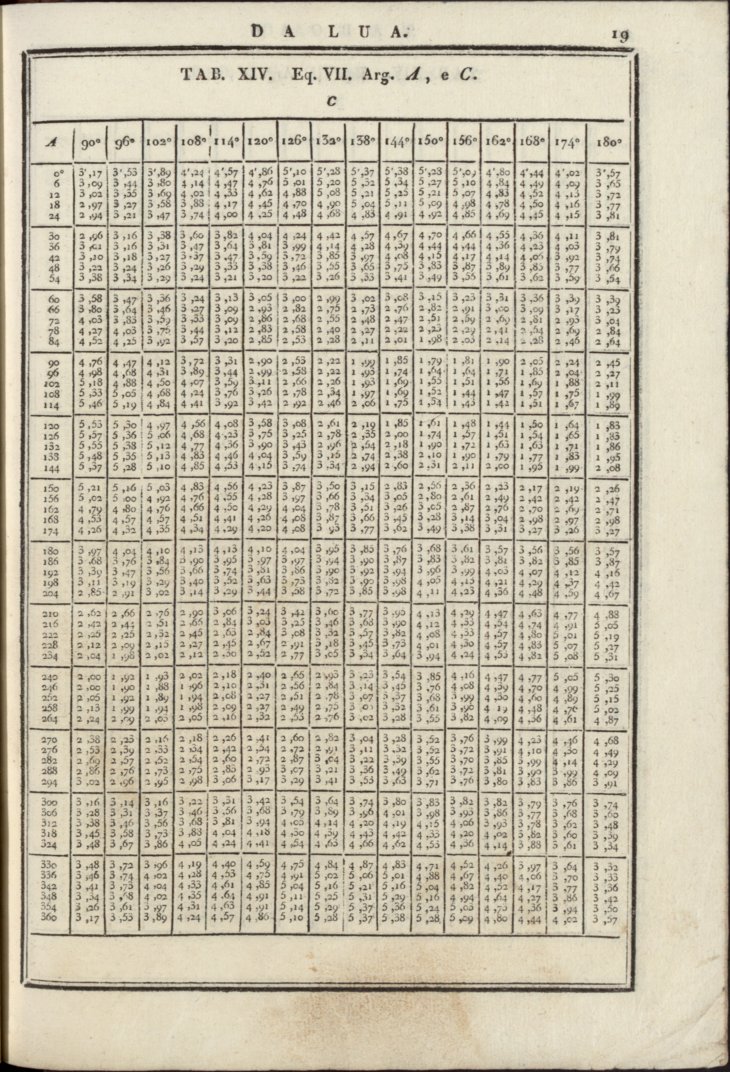 DA LUA. 19
TAB. XIV. Eq. VII. Arg. A, e C.
C
A 90° 96° 102° 108° 114° 120° 126° 132° 138° 144° 150° 156° 162° 168° 174° 180°
0° 3',17 3',53 3',89 4',24 4',57 4',86 5',10 5',28 5',37 5',38 5',28 5',09 4',80 4',44 4',02 3',57
6 3,09 3,44 3,80 4,14 4,47 4,76 5,01 5,20 5,32 5,34 5,27 5,10 4,84 4,49 4,09 3,65
12 3,02 3,35 3,69 4,02 4,33 4,62 4,88 5,08 5,21 5,25 5,21 5,07 4,83 4,52 4,13 3,72
18 2,97 3,27 3,58 3,88 4,17 4,45 4,70 4,90 5,04 5,11 5,09 4,98 4,78 4,50 4,16 3,77
24 2,94 3,21 3,47 3,74 4,00 4,25 4,48 4,68 4,83 4,91 4,92 4,85 4,69 4,45 4,15 3,81
30 2,96 3,16 3,38 3,60 3,82 4,04 4,24 4,42 4,57 4,67 4,70 4,66 4,55 4,36 4,11 3,81
36 3,01 3,16 3,31 3,47 3,64 3,81 3,99 4,14 4,28 4,39 4,44 4,44 4,36 4,23 4,03 3,79
42 3,10 3,18 3,27 3,37 3,47 3,59 3,72 3,85 3,97 4,08 4,15 4,17 4,14 4,06 3,92 3,74
48 3,22 3,24 3,26 3,29 3,33 3,38 3,46 3,55 3,65 3,75 3,83 3,87 3,89 3,85 3,77 3,66
54 3,38 3,34 3,29 3,24 3,21 3,20 3,22 3,26 3,33 3,41 3,49 3,56 3,61 3,62 3,59 3,54
60 3,58 3,47 3,36 3,24 3,13 3,05 3,00 2,99 3,02 3,08 3,15 3,23 3,31 3,36 3,39 3,39
66 3,80 3,64 3,46 3,27 3,09 2,93 2,82 2,75 2,73 2,76 2,82 2,91 3,00 3,09 3,17 3,23
72 4,03 3,83 3,59 3,33 3,09 2,86 2,68 2,55 2,48 2,47 2,51 2,59 2,69 2,81 2,93 3,04
78 4,27 4,03 3,75 3,44 3,12 2,83 2,58 2,40 2,27 2,22 2,23 2,29 2,41 2,54 2,69 2,84
84 4,52 4,25 3,92 3,57 3,20 2,85 2,53 2,28 2,11 2,01 1,98 2,03 2,14 2,28 2,46 2,64
90 4,76 4,47 4,12 3,72 3,31 2,90 2,53 2,22 1,99 1,85 1,79 1,81 1,90 2,05 2,24 2,45
96 4,98 4,68 4,31 3,89 3,44 2,99 2,58 2,22 1,95 1,74 1,64 1,64 1,71 1,85 2,04 2,27
102 5,18 4,88 4,50 4,07 3,59 3,11 2,66 2,26 1,93 1,69 1,55 1,51 1,56 1,69 1,88 2,11
108 5,33 5,05 4,68 4,24 3,76 3,26 2,78 2,34 1,97 1,69 1,52 1,44 1,47 1,57 1,75 1,99
114 5,46 5,19 4,84 4,41 3,92 3,42 2,92 2,46 2,06 1,75 1,54 1,43 1,42 1,51 1,67 1,89
120 5,53 5,30 4,97 4,56 4,08 3,58 3,08 2,61 2,19 1,85 1,61 1,48 1,44 1,50 1,64 1,83
126 5,57 5,36 5,06 4,68 4,23 3,75 3,25 2,78 2,35 2,00 1,74 1,57 1,51 1,54 1,65 1,83
132 5,55 5,38 5,12 4,77 4,36 3,90 3,43 2,96 2,54 2,18 1,90 1,72 1,63 1,63 1,71 1,86
138 5,48 5,35 5,13 4,83 4,46 4,04 3,59 3,15 2,74 2,38 2,10 1,90 1,79 1,77 1,83 1,95
144 5,37 5,28 5,10 4,85 4,53 4,15 3,74 3,34 2,94 2,60 2,31 2,11 2,00 1,95 1,99 2,08
150 5,21 5,16 5,03 4,83 4,56 4,23 3,87 3,50 3,15 2,83 2,56 2,36 2,23 2,17 2,19 2,26
156 5,02 5,00 4,92 4,76 4,55 4,28 3,97 3,66 3,34 3,05 2,80 2,61 2,49 2,42 2,42 2,47
162 4,79 4,80 4,76 4,66 4,50 4,29 4,04 3,78 3,51 3,26 3,05 2,87 2,76 2,70 2,69 2,71
168 4,53 4,57 4,57 4,51 4,41 4,26 4,08 3,87 3,66 3,45 3,28 3,14 3,04 2,98 2,97 2,98
174 4,26 4,32 4,35 4,34 4,29 4,20 4,08 3,93 3,77 3,62 3,49 3,38 3,31 3,27 3,26 3,27
180 3,97 4,04 4,10 4,13 4,13 4,10 4,04 3,95 3,85 3,76 3,68 3,61 3,57 3,56 3,56 3,57
186 3,68 3,76 3,84 3,90 3,95 3,97 3,97 3,94 3,90 3,87 3,83 3,82 3,81 3,82 3,85 3,87
192 3,39 3,47 3,56 3,66 3,74 3,81 3,86 3,90 3,92 3,94 3,96 3,99 4,03 4,07 4,12 4,16
198 3,11 3,19 3,29 3,40 3,52 3,63 3,73 3,82 3,90 3,98 4,05 4,13 4,21 4,29 4,37 4,42
204 2,85 2,91 3,02 3,14 3,29 3,44 3,58 3,72 3,85 3,98 4,11 4,23 4,36 4,48 4,59 4,67
210 2,62 2,66 2,76 2,90 3,06 3,24 3,42 3,60 3,77 3,95 4,13 4,29 4,47 4,63 4,77 4,88
216 2,42 2,44 2,51 2,66 2,84 3,03 3,25 3,46 3,68 3,90 4,12 4,33 4,54 4,74 4,91 5,05
222 2,25 2,25 2,32 2,45 2,63 2,84 3,08 3,32 3,57 3,82 4,08 4,33 4,57 4,80 5,01 5,19
228 2,12 2,09 2,13 2,27 2,45 2,67 2,91 3,18 3,45 3,73 4,01 4,30 4,57 4,83 5,07 5,27
234 2,04 1,98 2,02 2,12 2,30 2,52 2,77 3,05 3,34 3,64 3,94 4,24 4,53 4,82 5,08 5,31
240 2,00 1,92 1,93 2,02 2,18 2,40 2,66 2,93 3,23 3,54 3,85 4,16 4,47 4,77 5,05 5,30
246 2,00 1,90 1,88 1,96 2,10 2,31 2,56 2,84 3,14 3,45 3,76 4,08 4,39 4,70 4,99 5,25
252 2,05 1,92 1,89 1,94 2,08 2,27 2,51 2,78 3,07 3,37 3,68 3,99 4,30 4,60 4,89 5,15
258 2,13 1,99 1,94 1,98 2,09 2,27 2,49 2,75 3,03 3,32 3,61 3,90 4,19 4,48 4,76 5,02
264 2,24 2,09 2,03 2,05 2,16 2,32 2,53 2,76 3,02 3,28 3,55 3,82 4,09 4,36 4,61 4,87
270 2,38 2,23 2,16 2,18 2,26 2,41 2,60 2,82 3,04 3,28 3,52 3,76 3,99 4,23 4,46 4,68
276 2,53 2,39 2,33 2,34 2,42 2,54 2,72 2,91 3,11 3,32 3,52 3,72 3,91 4,10 4,30 4,49
282 2,69 2,57 2,52 2,54 2,60 2,72 2,87 3,04 3,22 3,39 3,55 3,70 3,85 3,99 4,14 4,29
288 2,86 2,76 2,73 2,75 2,83 2,93 3,07 3,21 3,36 3,49 3,62 3,72 3,81 3,90 3,99 4,09
294 3,02 2,96 2,95 2,98 3,06 3,17 3,29 3,41 3,55 3,63 3,71 3,76 3,80 3,83 3,86 3,91
300 3,16 3,14 3,16 3,22 3,31 3,42 3,54 3,64 3,74 3,80 3,83 3,82 3,82 3,79 3,76 3,74
306 3,28 3,31 3,37 3,46 3,56 3,68 3,79 3,89 3,96 4,01 3,98 3,93 3,86 3,77 3,68 3,60
312 3,38 3,46 3,56 3,68 3,81 3,94 4,05 4,14 4,20 4,19 4,15 4,06 3,93 3,78 3,62 3,48
318 3,45 3,58 3,73 3,88 4,04 4,18 4,30 4,39 4,43 4,42 4,33 4,20 4,02 3,82 3,60 3,39
324 3,48 3,67 3,86 4,05 4,24 4,41 4,54 4,63 4,66 4,62 4,53 4,36 4,14 3,88 3,61 3,34
330 3,48 3,72 3,96 4,19 4,40 4,59 4,75 4,84 4,87 4,83 4,71 4,52 4,26 3,97 3,64 3,32
336 3,46 3,74 4,02 4,28 4,53 4,75 4,91 5,02 5,06 5,01 4,88 4,67 4,40 4,06 3,70 3,33
342 3,41 3,73 4,04 4,33 4,61 4,85 5,04 5,16 5,21 5,16 5,04 4,82 4,52 4,17 3,77 3,36
348 3,34 3,68 4,02 4,35 4,64 4,91 5,11 5,25 5,31 5,29 5,16 4,94 4,64 4,27 3,86 3,42
354 3,26 3,61 3,97 4,31 4,63 4,91 5,14 5,29 5,37 5,36 5,24 5,03 4,73 4,36 3,94 3,50
360 3,17 3,53 3,89 4,24 4,57 4,86 5,10 5,28 5,37 5,38 5,28 5,09 4,80 4,44 4,02 3,57